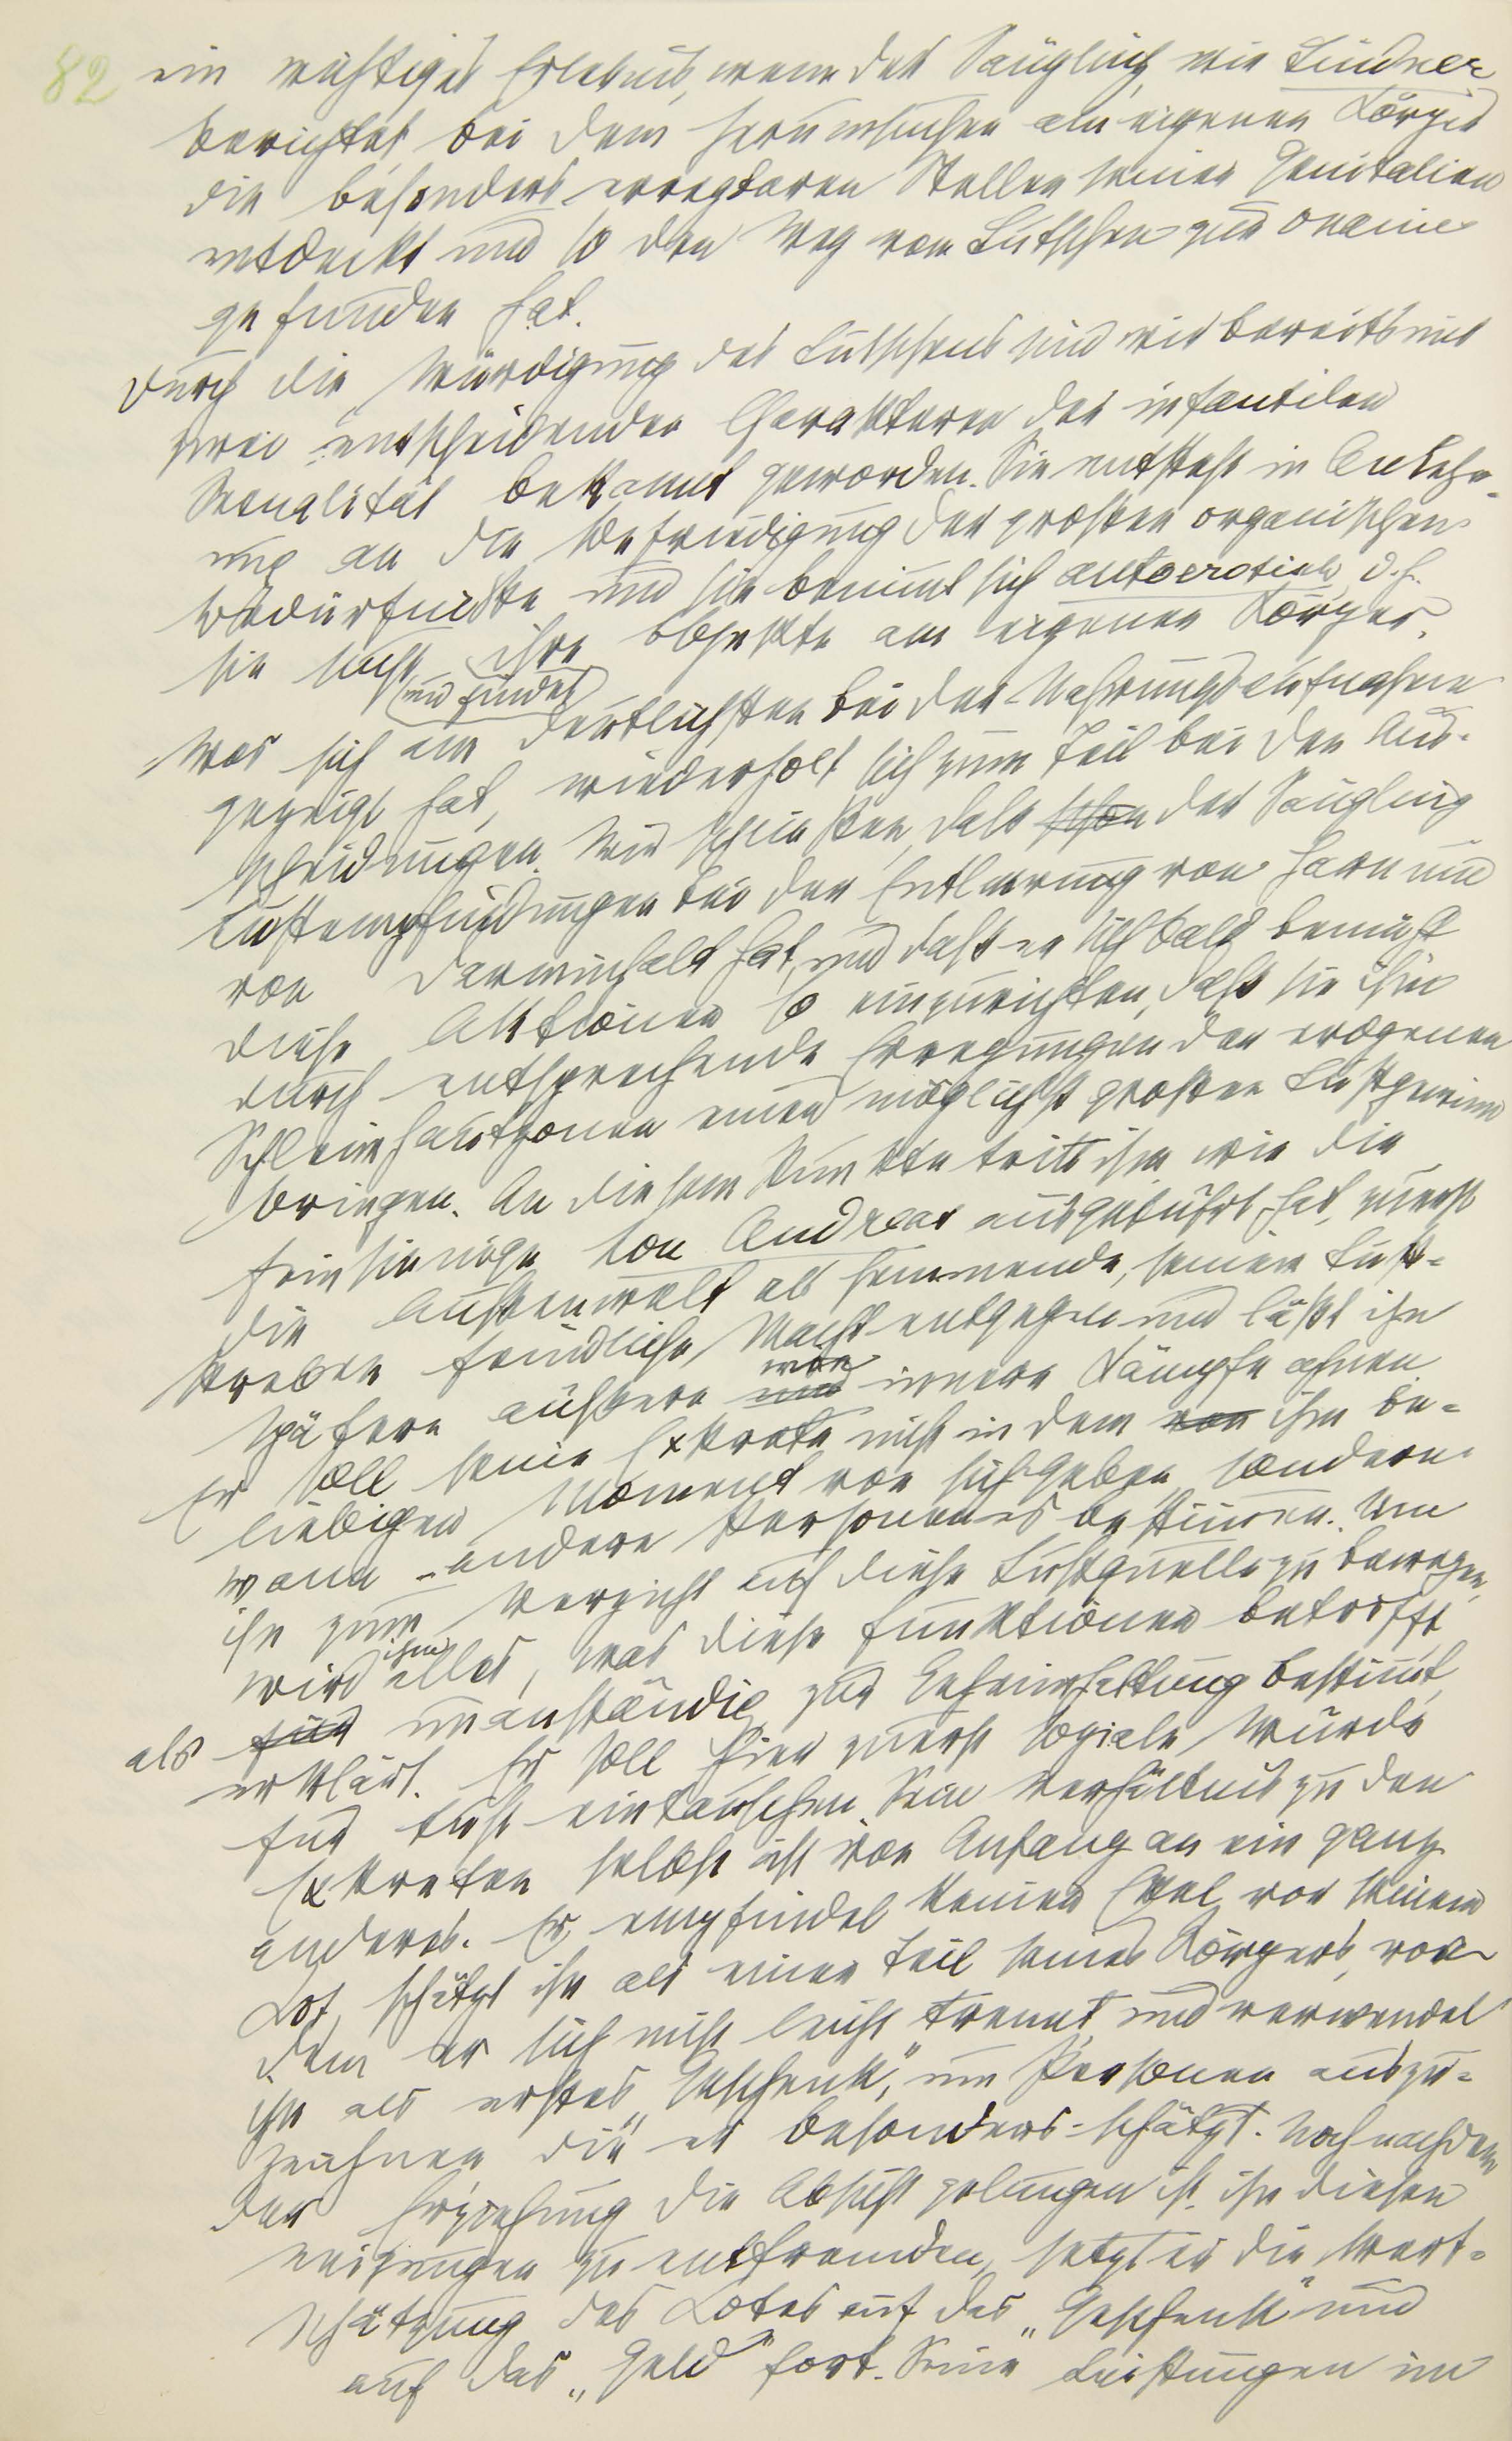 82 ein wichtiges Erlebnis, wenn der Säugling, wie Lindner
berichtet, bei dem Herumsuchen am eigenen Körper
die besonders erregbaren Stellen seiner Genitalien
entdeckt und so den Weg vom Lutschen zur Onanie
gefunden hat.
Durch die Würdigung des Lutschens sind wir bereits mit
zwei entscheidenden Charakteren der infantilen
Sexualität bekannt geworden. Sie entsteht in Anlehn-
ung an die Befriedigung der großen organischen
Bedürfnisse und sie benimmt sich autoerotisch, d.h.
sie sucht ihre Objekte am eigenen Körper.
und findet
Was sich am deutlichsten bei der Nahrungsaufnahme
gezeigt hat, wiederholt sich zum Teil bei den Aus-
scheidungen. Wir schließen, daß schon der Säugling
Lustempfindungen bei der Entleerung von Harn und
von Darminhalt hat, und daß er sich bald bemüht
diese Aktionen so einzurichten, daß sie ihm
durch entsprechende Erregungen der erogenen
Schleimhautzonen einen möglichst großen Lustgewinn
bringen. An diesem Punkte tritt ihm, wie die
feinsinnige Lou Andreas ausgeführt hat, zuerst
die Außenwelt als hemmende, seinem Lust-
streben feindliche Macht entgegen und läßt ihn
wie
spätere äußere und innere Kämpfe ahnen.
Er soll seine Exkrete nicht in dem von ihm be-
liebigen Moment von sich geben, sondern
wann andere Personen es bestimmen. Um
ihn zum Verzicht auf diese Lustquelle zu bewegen,
ihm
wird alles, was diese Funktionen betrifft,
als für unanständig, zur Geheimhaltung bestimmt,
erklärt. Er soll hier zuerst soziale Würde
für Lust eintauschen. Sein Verhältnis zu den
Exkreten selbst ist von Anfang an ein ganz
anderes. Er empfindet keinen Ekel vor seinem
Kot, schätzt ihn als einen Teil seines Körpers, von
dem er sich nicht leicht trennt, und verwendet
ihn als erstes „Geschenk", um Personen auszu-
zeichnen, die er besonders schätzt. Noch nachdem
der Erziehung die Absicht gelungen ist, ihn diesen
Neigungen zu entfremden, setzt er die Wert-
schätzung des Kotes auf das „Geschenk" und
auf das „Geld" fort. Seine Leistungen im